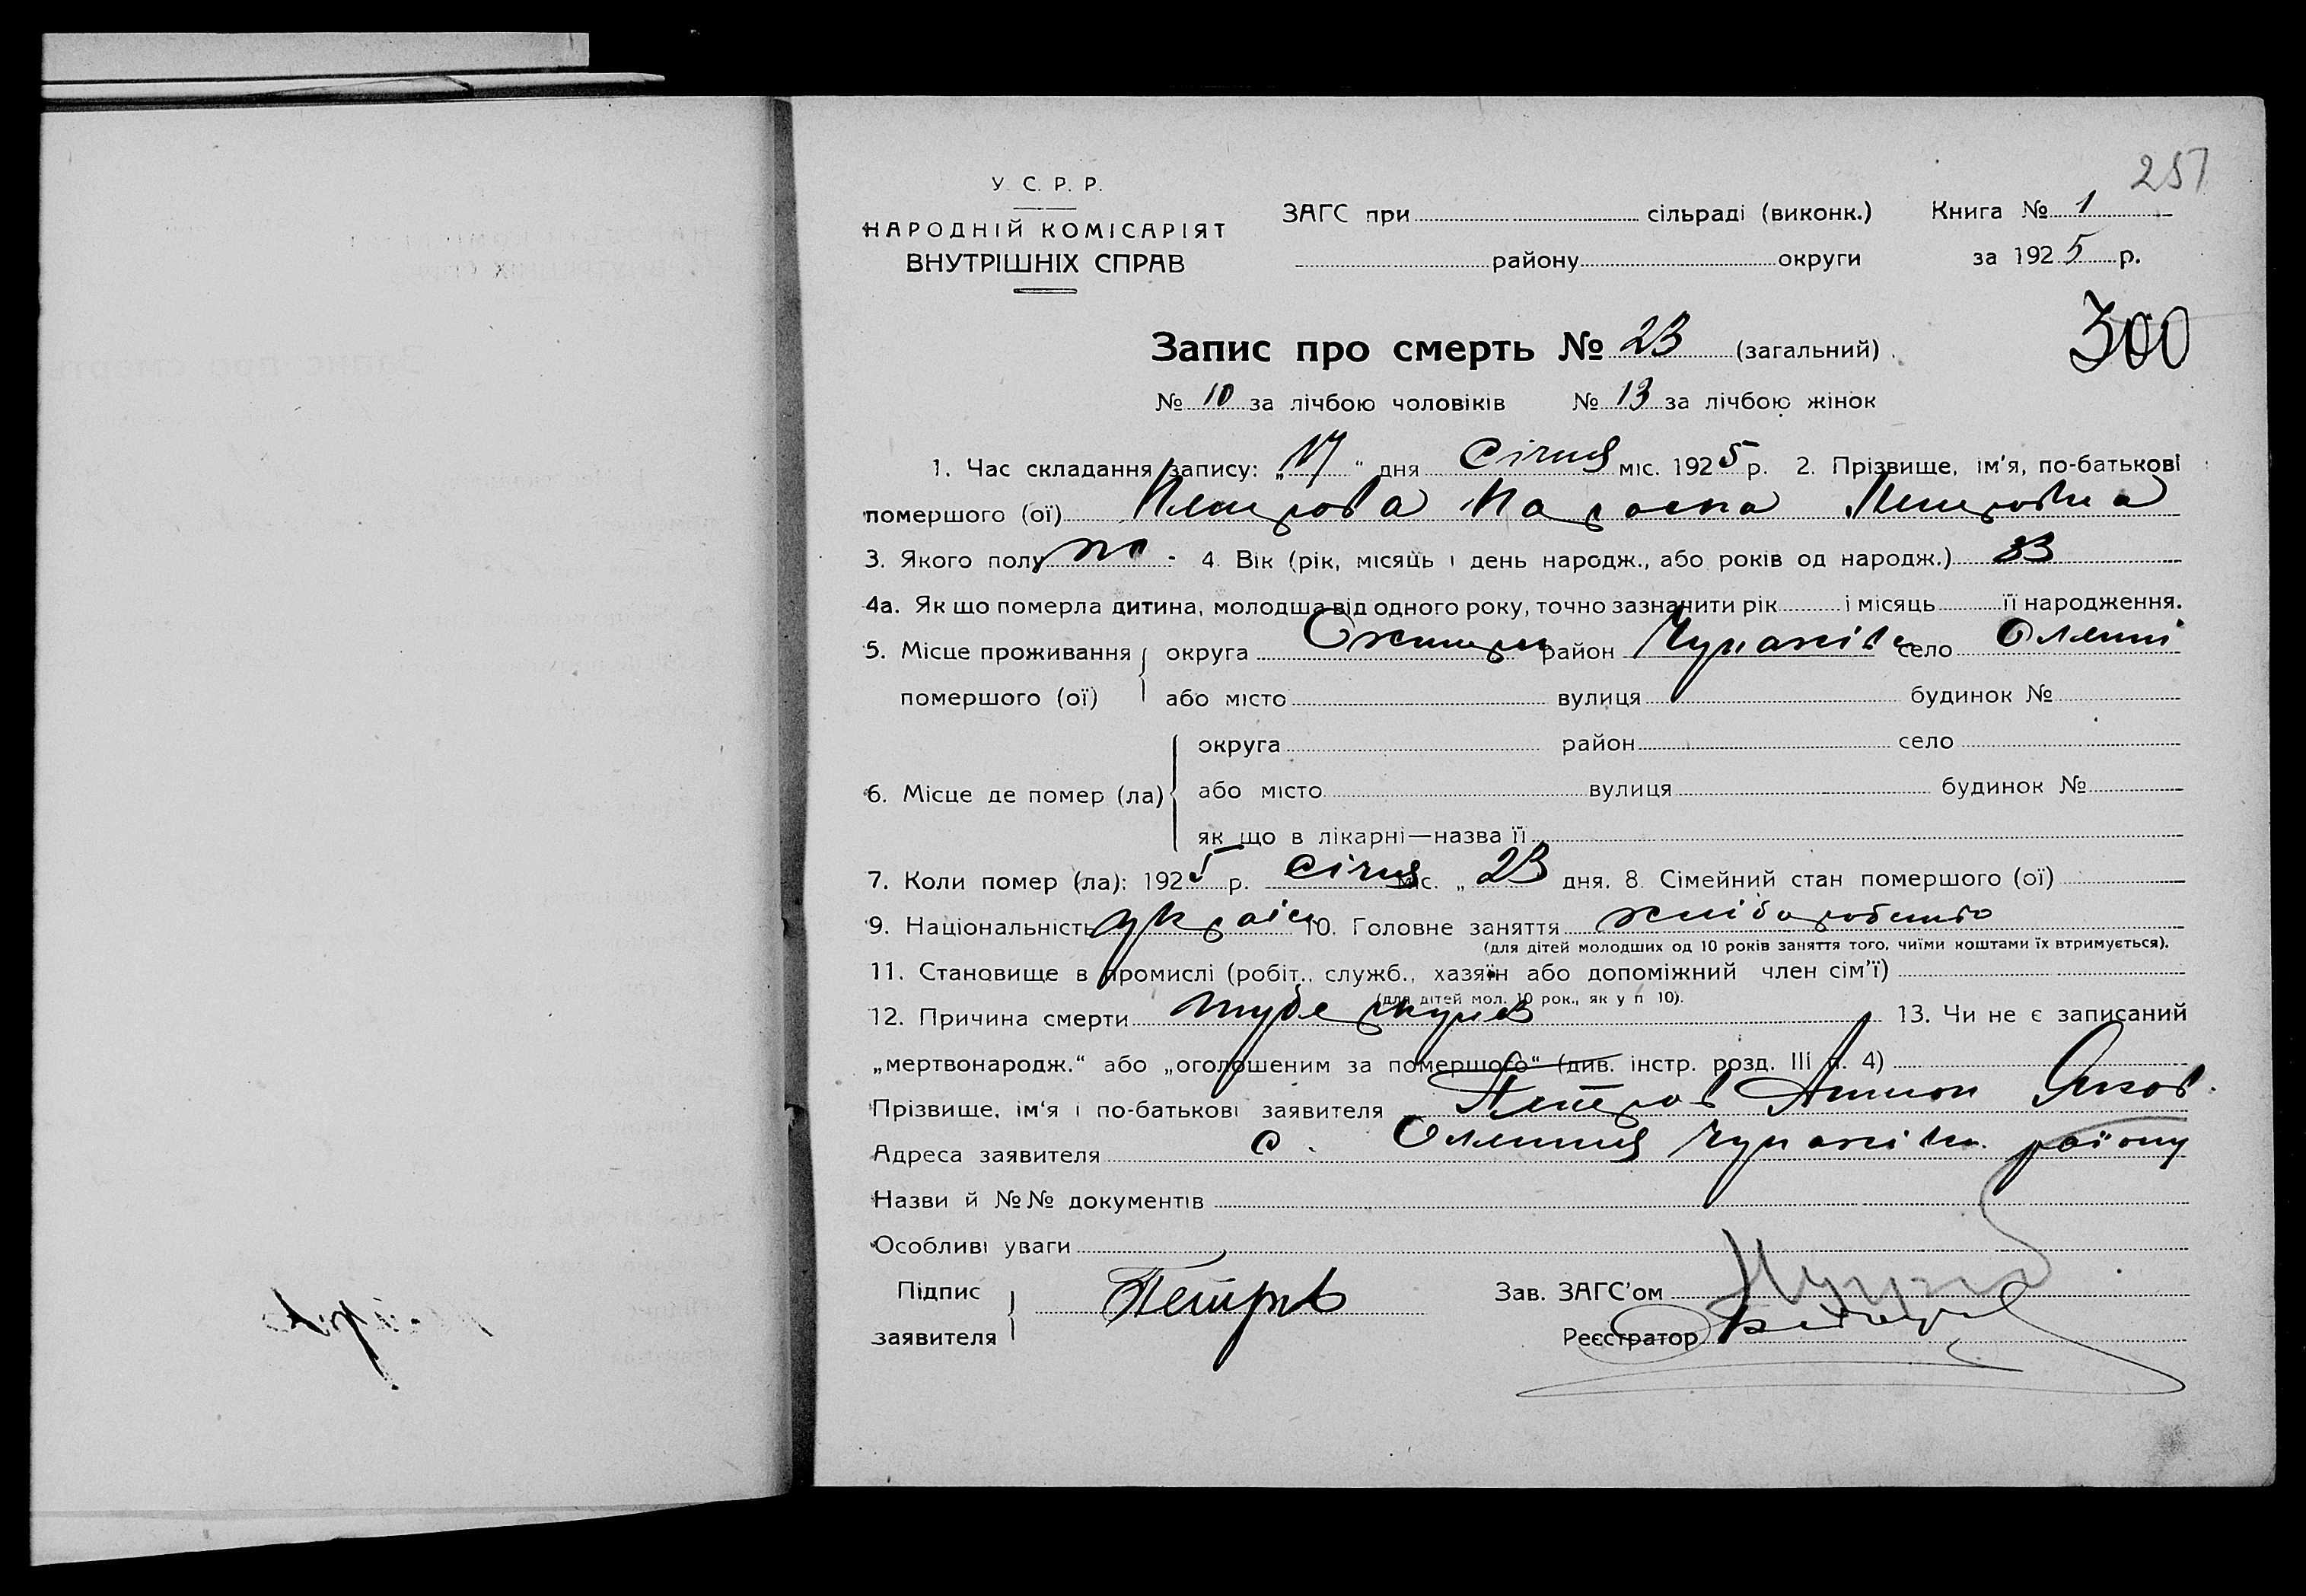 251
У. С. Р. Р.
НАРОДНІЙ КОМІСАРІЯТ
ВНУТРІШНІХ СПРАВ
ЗАГС при сільраді (виконк.) Книга № 1
району округи за 1925 р.
300
Запис про смерть № 23 (загальний)
№ 10 за лічбою чоловіків № 13 за лічбою жінок
1. Час складання запису: „ “ дня Січня міс. 1925 р. 2. Прізвище, ім'я, по-батькові
помершого (ої) Петрова Параска Петровна
3. Якого полу ж - 4. Вік (рік, місяць і день народж., або років од народж.) 33
4а. Як що померла дитина, молодша від одного року, точно зазначити рік і місяць її народження.
5. Місце проживання округа район село
помершого (ої) або місто вулиця будинок №
округа район село
6. Місце де помер (ла) або місто вулиця будинок №
як що в лікарні—назва її
7. Коли помер (ла): 1925 р. Січня міс. „ 23 дня. 8. Сімейний стан помершого (ої)
9. Національність україн 10. Головне заняття хліборобство
(для дітей молодших од 10 років заняття того, чиїми коштами їх втримується).
11. Становище в промислі (робіт., служб., хазяїн або допоміжний член сім'ї)
(для дітей мол. 10 рок., як у п 10).
12. Причина смерти туберкульоз 13. Чи не є записаний
„мертвонародж.“ або „оголошеним за помершого“ (див. інстр. розд. III п. 4)
Прізвище, ім'я і по-батькові заявителя Петров Антон Яков.
Адреса заявителя с. району
Назви й №№ документів
Особливі уваги
Підпис
заявителя Петров
Зав. ЗАГС'ом
Реєстратор